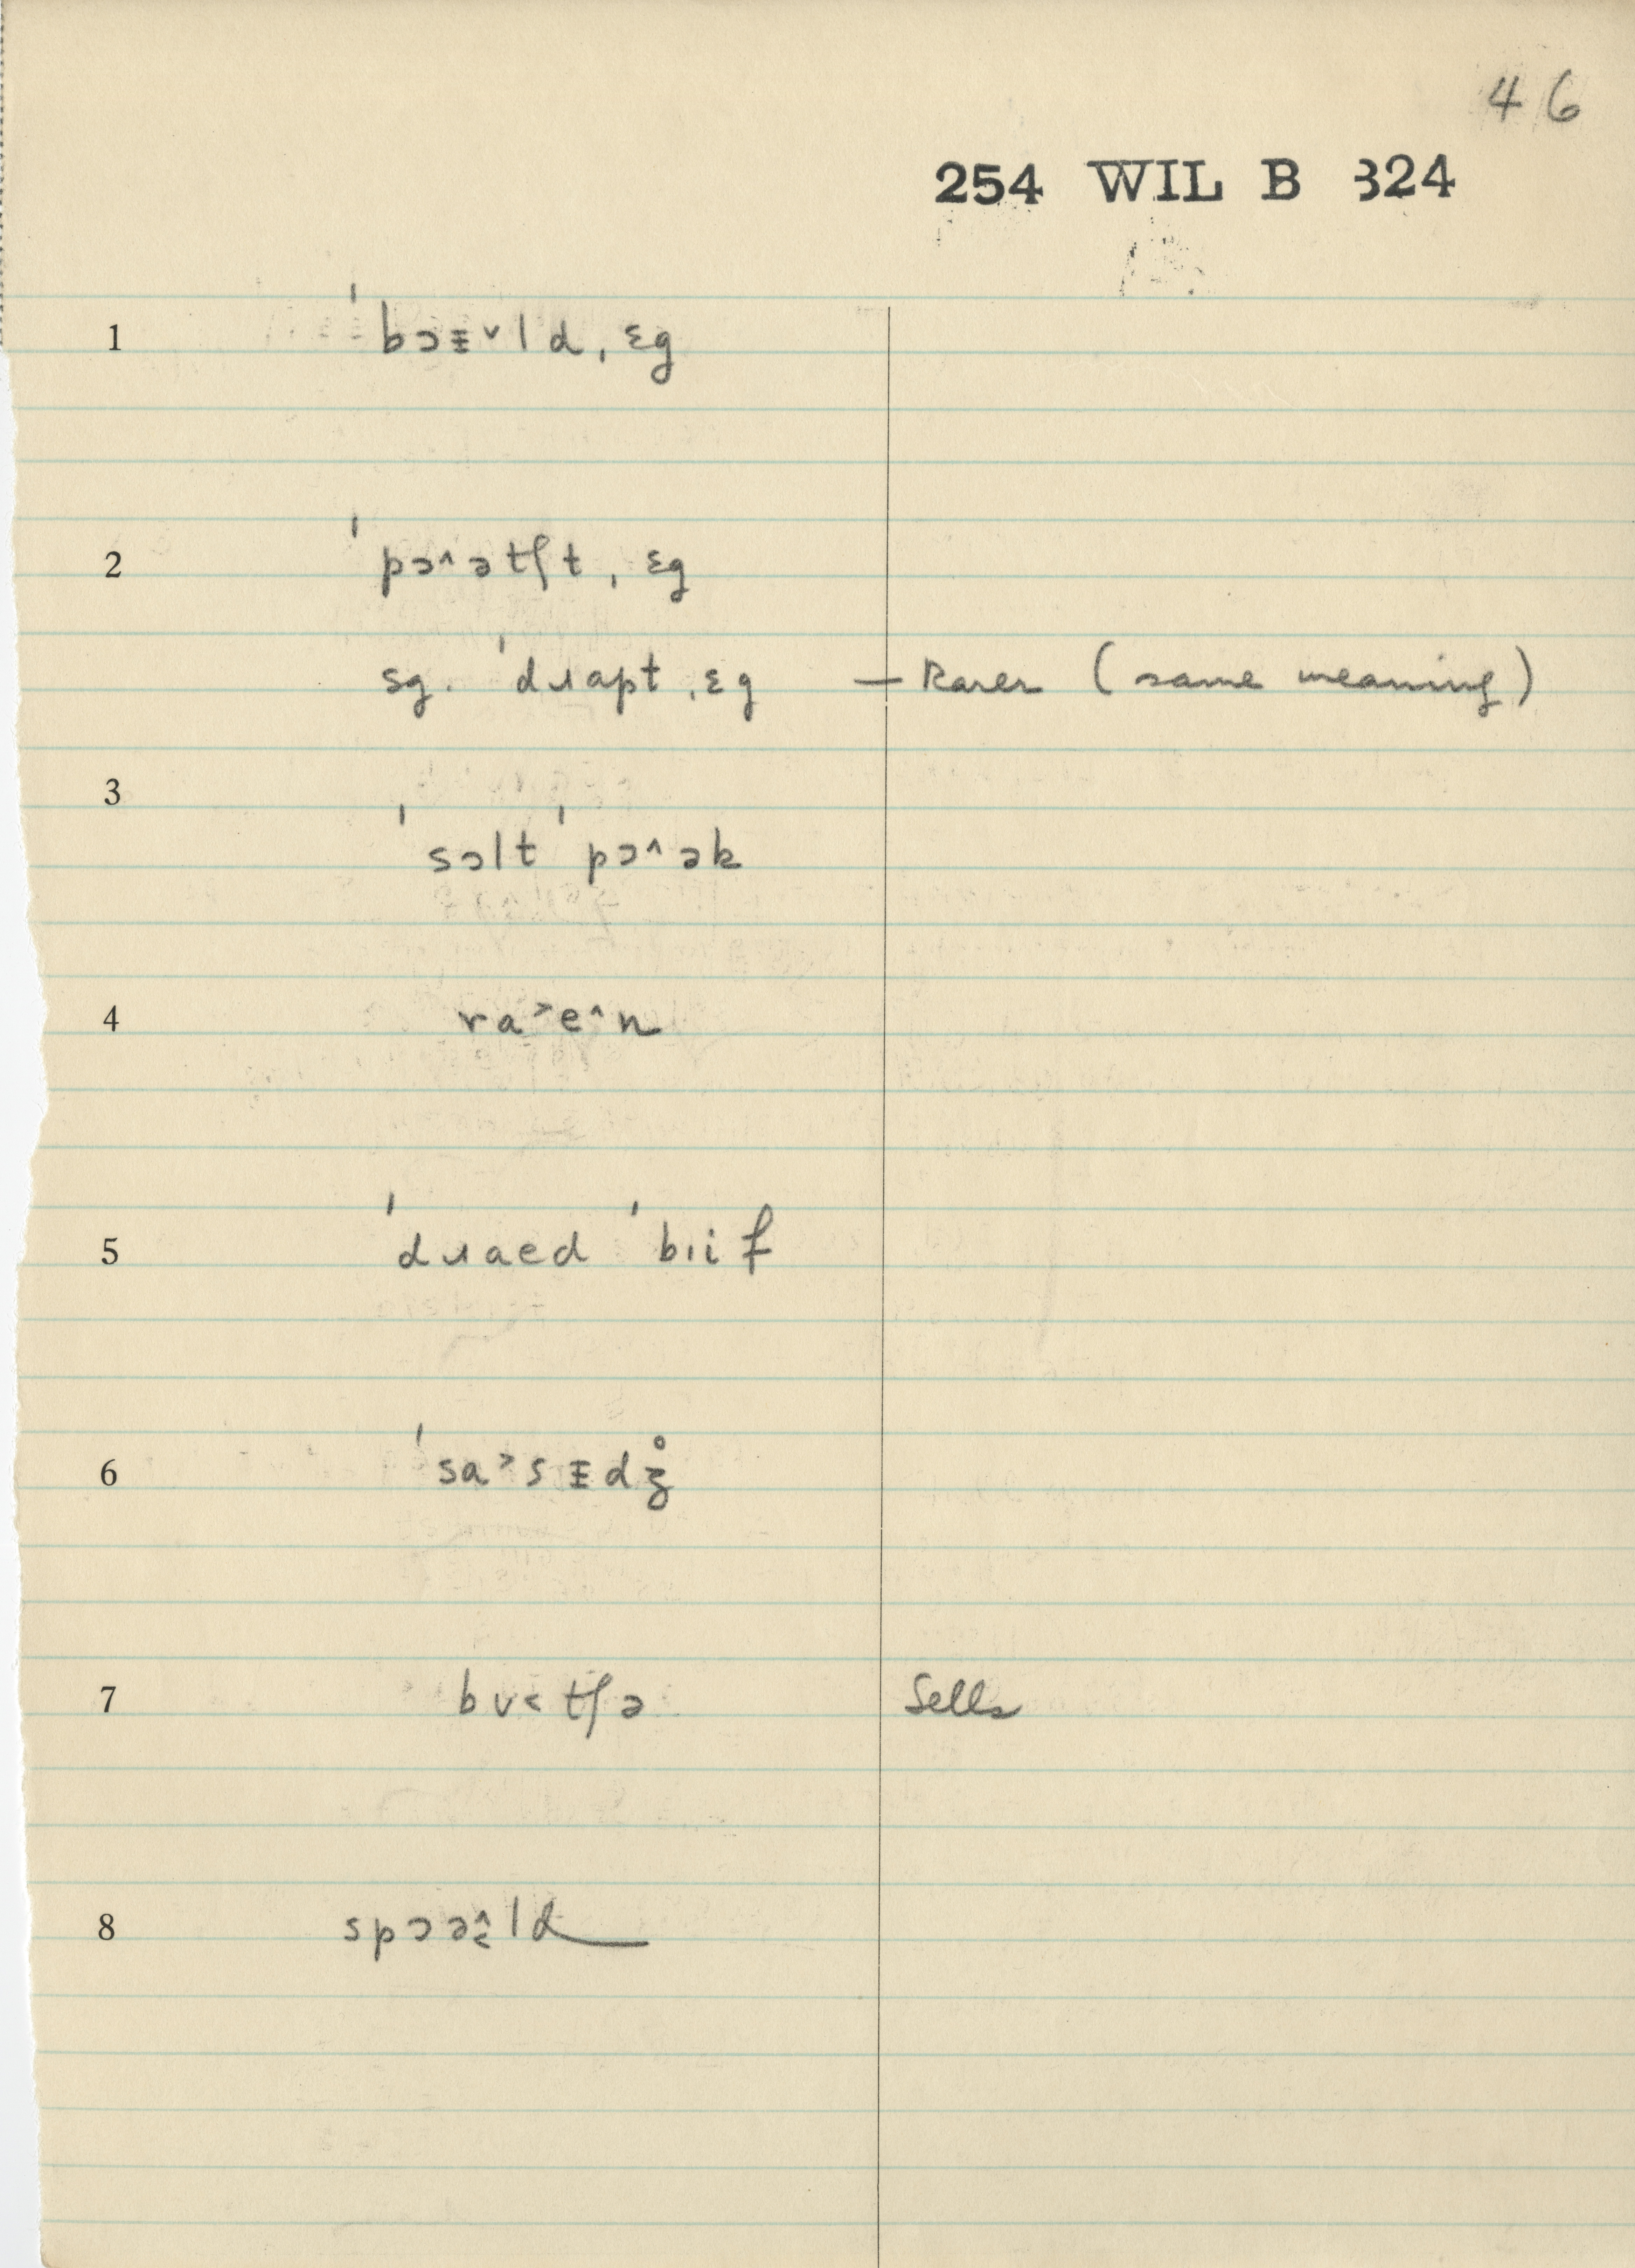 46
254 WIL B 324
1 ˈbɔᵻ˅ld ˌɛg
2 ˈpɔ^ətʃt ˌɛg
sg. ˈdɹapt ˌɛg — Rarer (same meaning)
3 ˈsɔlt ˈpɔ^ək
4 ra˃e^n
5 ˈdɹaed ˈbɪif
6 ˈsa˃sᵻdʒ̊
7 bʊ˂tʃə Sells
8 spɔə^˂ld